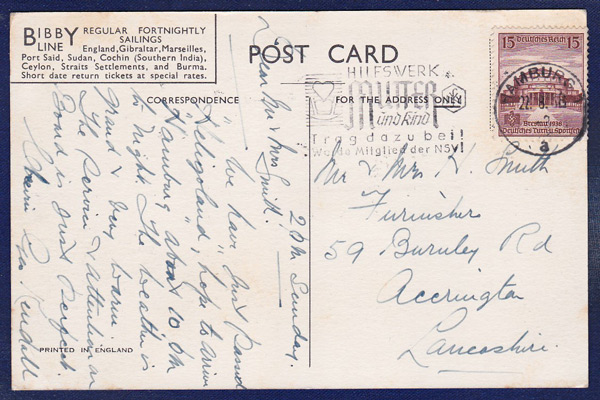 BIBBY LINE
REGULAR FORTNIGHTLY
SAILINGS
England, Gibraltar, Marseilles,
Port Said, Sudan, Cochin (Southern India),
Ceylon, Straits Settlements, and Burma.
Short date return tickets at special rates.
POST CARD
CORRESPONDENCE
FOR THE ADDRESS ONLY
HILFSWERK
MUTTER
und Kind
Tragdazubei!
Werde Mitglied der NSV!
15 Deutsches Reich 15
Breslau 1938
Deutsches Turn u Sportfest
HAMBURG
a
2 PM Sunday.
Dear Mr & Mrs Smith.
We have just passed
Heligoland, hope to arrive
Hamburg about 10 PM
to night. The weather is
grand & very warm
The Service & attention on
Board is just Perfect
Kendall
Mr & Mrs K. Smith
Furnishers
59 Burnley Rd
Accrington
Lancashire.
PRINTED IN ENGLAND